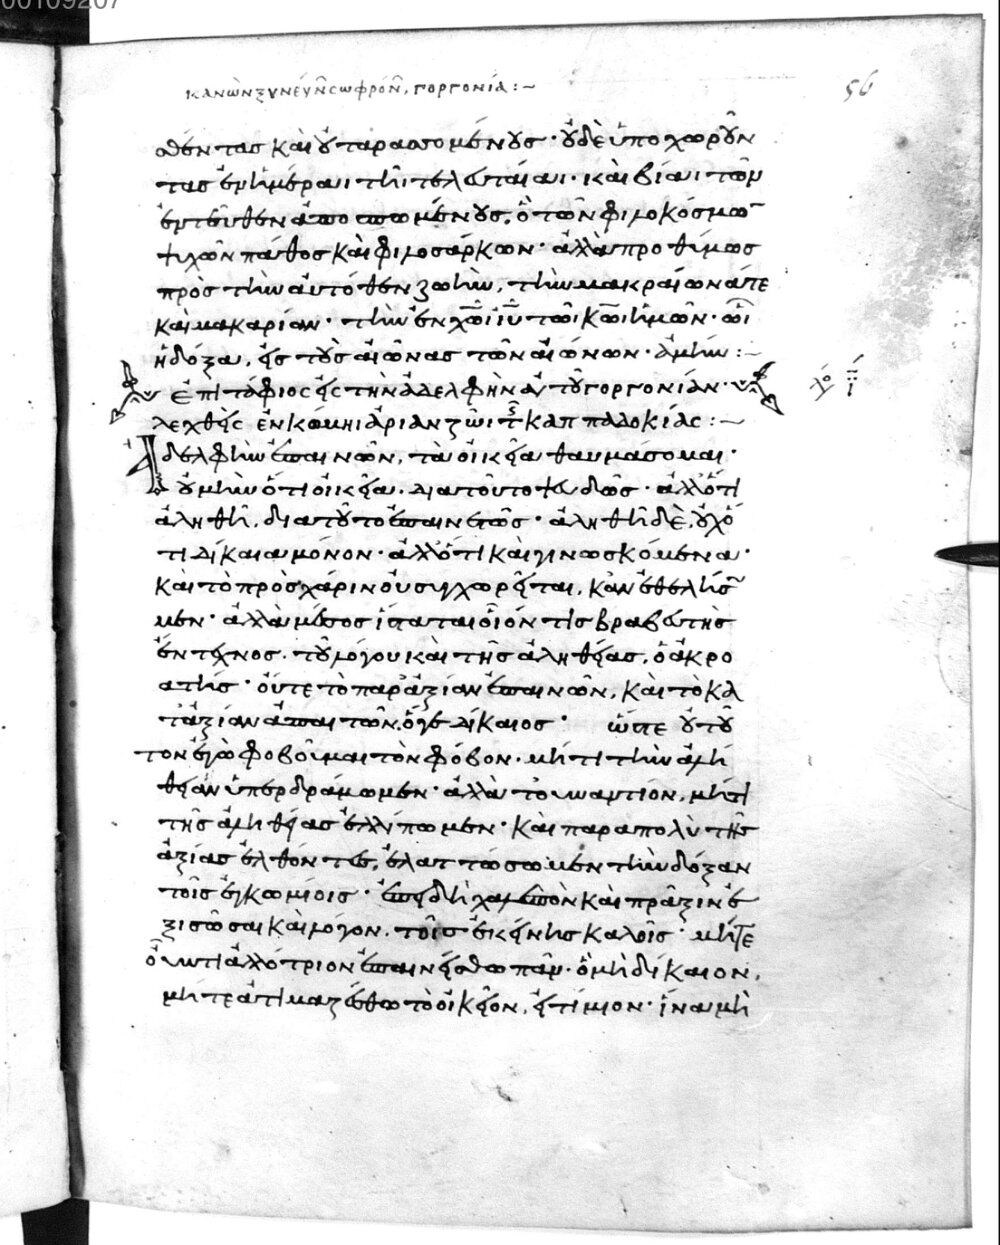 00109207
κανὼν ξυνεύν̅ σωφρόν̅, γοργονία :~
56
θέντας καὶ οὐ ταρασσομένους· οὐδὲ ὑποχωροῦν
τας ἐν ἡμέραι τῆι τελευταίαι· καὶ βίαι τῶν
ἐντεῦθεν ἀποσπωμένους, ὃ τῶν φιλοκόσμω̅
ψυχῶν πάθος καὶ φιλοσάρκων· ἀλλὰ προθύμως
πρὸς τὴν αὐτόθεν ζωὴν, τὴν μακραίωνά τε
καὶ μακαρίαν· τὴν ἐν χ̅ω̅ι ι̅υ̅ τῶι κ̅ω̅ι ἡμῶν· ὧι
ἡ δόξα, εἰς τοὺς αἰῶνας τῶν αἰώνων· ἀμήν :~
ἐπιτάφιος εἰς τὴν ἀδελφὴν αὐτοῦ γοργονίαν·
λεχθεὶς ἐν κώμηι ἀριανζῶι τ̅ς̅ καππαδοκίας :~
Ἀδελφὴν ἐπαινῶν, τὰ οἰκεῖα θαυμάσομαι·
οὐ μὴν ὅτι οἰκεῖα, διατοῦτο ψευδῶς· ἀλλ' ὅτι
ἀληθῆ, διατοῦτο ἐπαινετῶς· ἀληθῆ δὲ, οὐχ ὅ
τι δίκαια μόνον· ἀλλ' ὅτι καὶ γινωσκόμενα·
καὶ τὸ πρὸς χάριν οὐ συγχωρεῖται, κἂν ἐθελήσ̅
μεν· ἀλλὰ μέσος ἵσταται οἷόν τις βραβευτὴς
ἔντεχνος, τοῦ λόγου καὶ τῆς ἀληθείας, ὁ ἀκρο
ατής· οὔτε τὸ παρ' ἀξίαν ἐπαινῶν, καὶ τὸ κα
τ' ἀξίαν ἀπαιτῶν, ὅ γε δίκαιος· ὥστε οὐ τοῦ
τον ἐγὼ φοβοῦμαι τὸν φόβον· μή τι τὴν ἀλή
θειαν ὑπερδράμωμεν· ἀλλὰ τοὐναντίον, μή τι
τῆς ἀληθείας ἐλλίπωμεν· καὶ παραπολὺ τῆς
ἀξίας ἐλθόντες, ἐλαττώσωμεν τὴν δόξαν
τοῖς ἐγκωμίοις· ἐπειδὴ χαλεπὸν καὶ πρᾶξιν ἐ
ξισῶσαι καὶ λόγον, τοῖς ἐκείνης καλοῖς· μήτε
οὖν τὶ ἀλλότριον ἐπαινείσθω πᾶν· ὃ μὴ δίκαιον,
μήτε ἀτιμαζέσθω τὸ οἰκεῖον, εἰ τίμιον· ἵνα μὴ